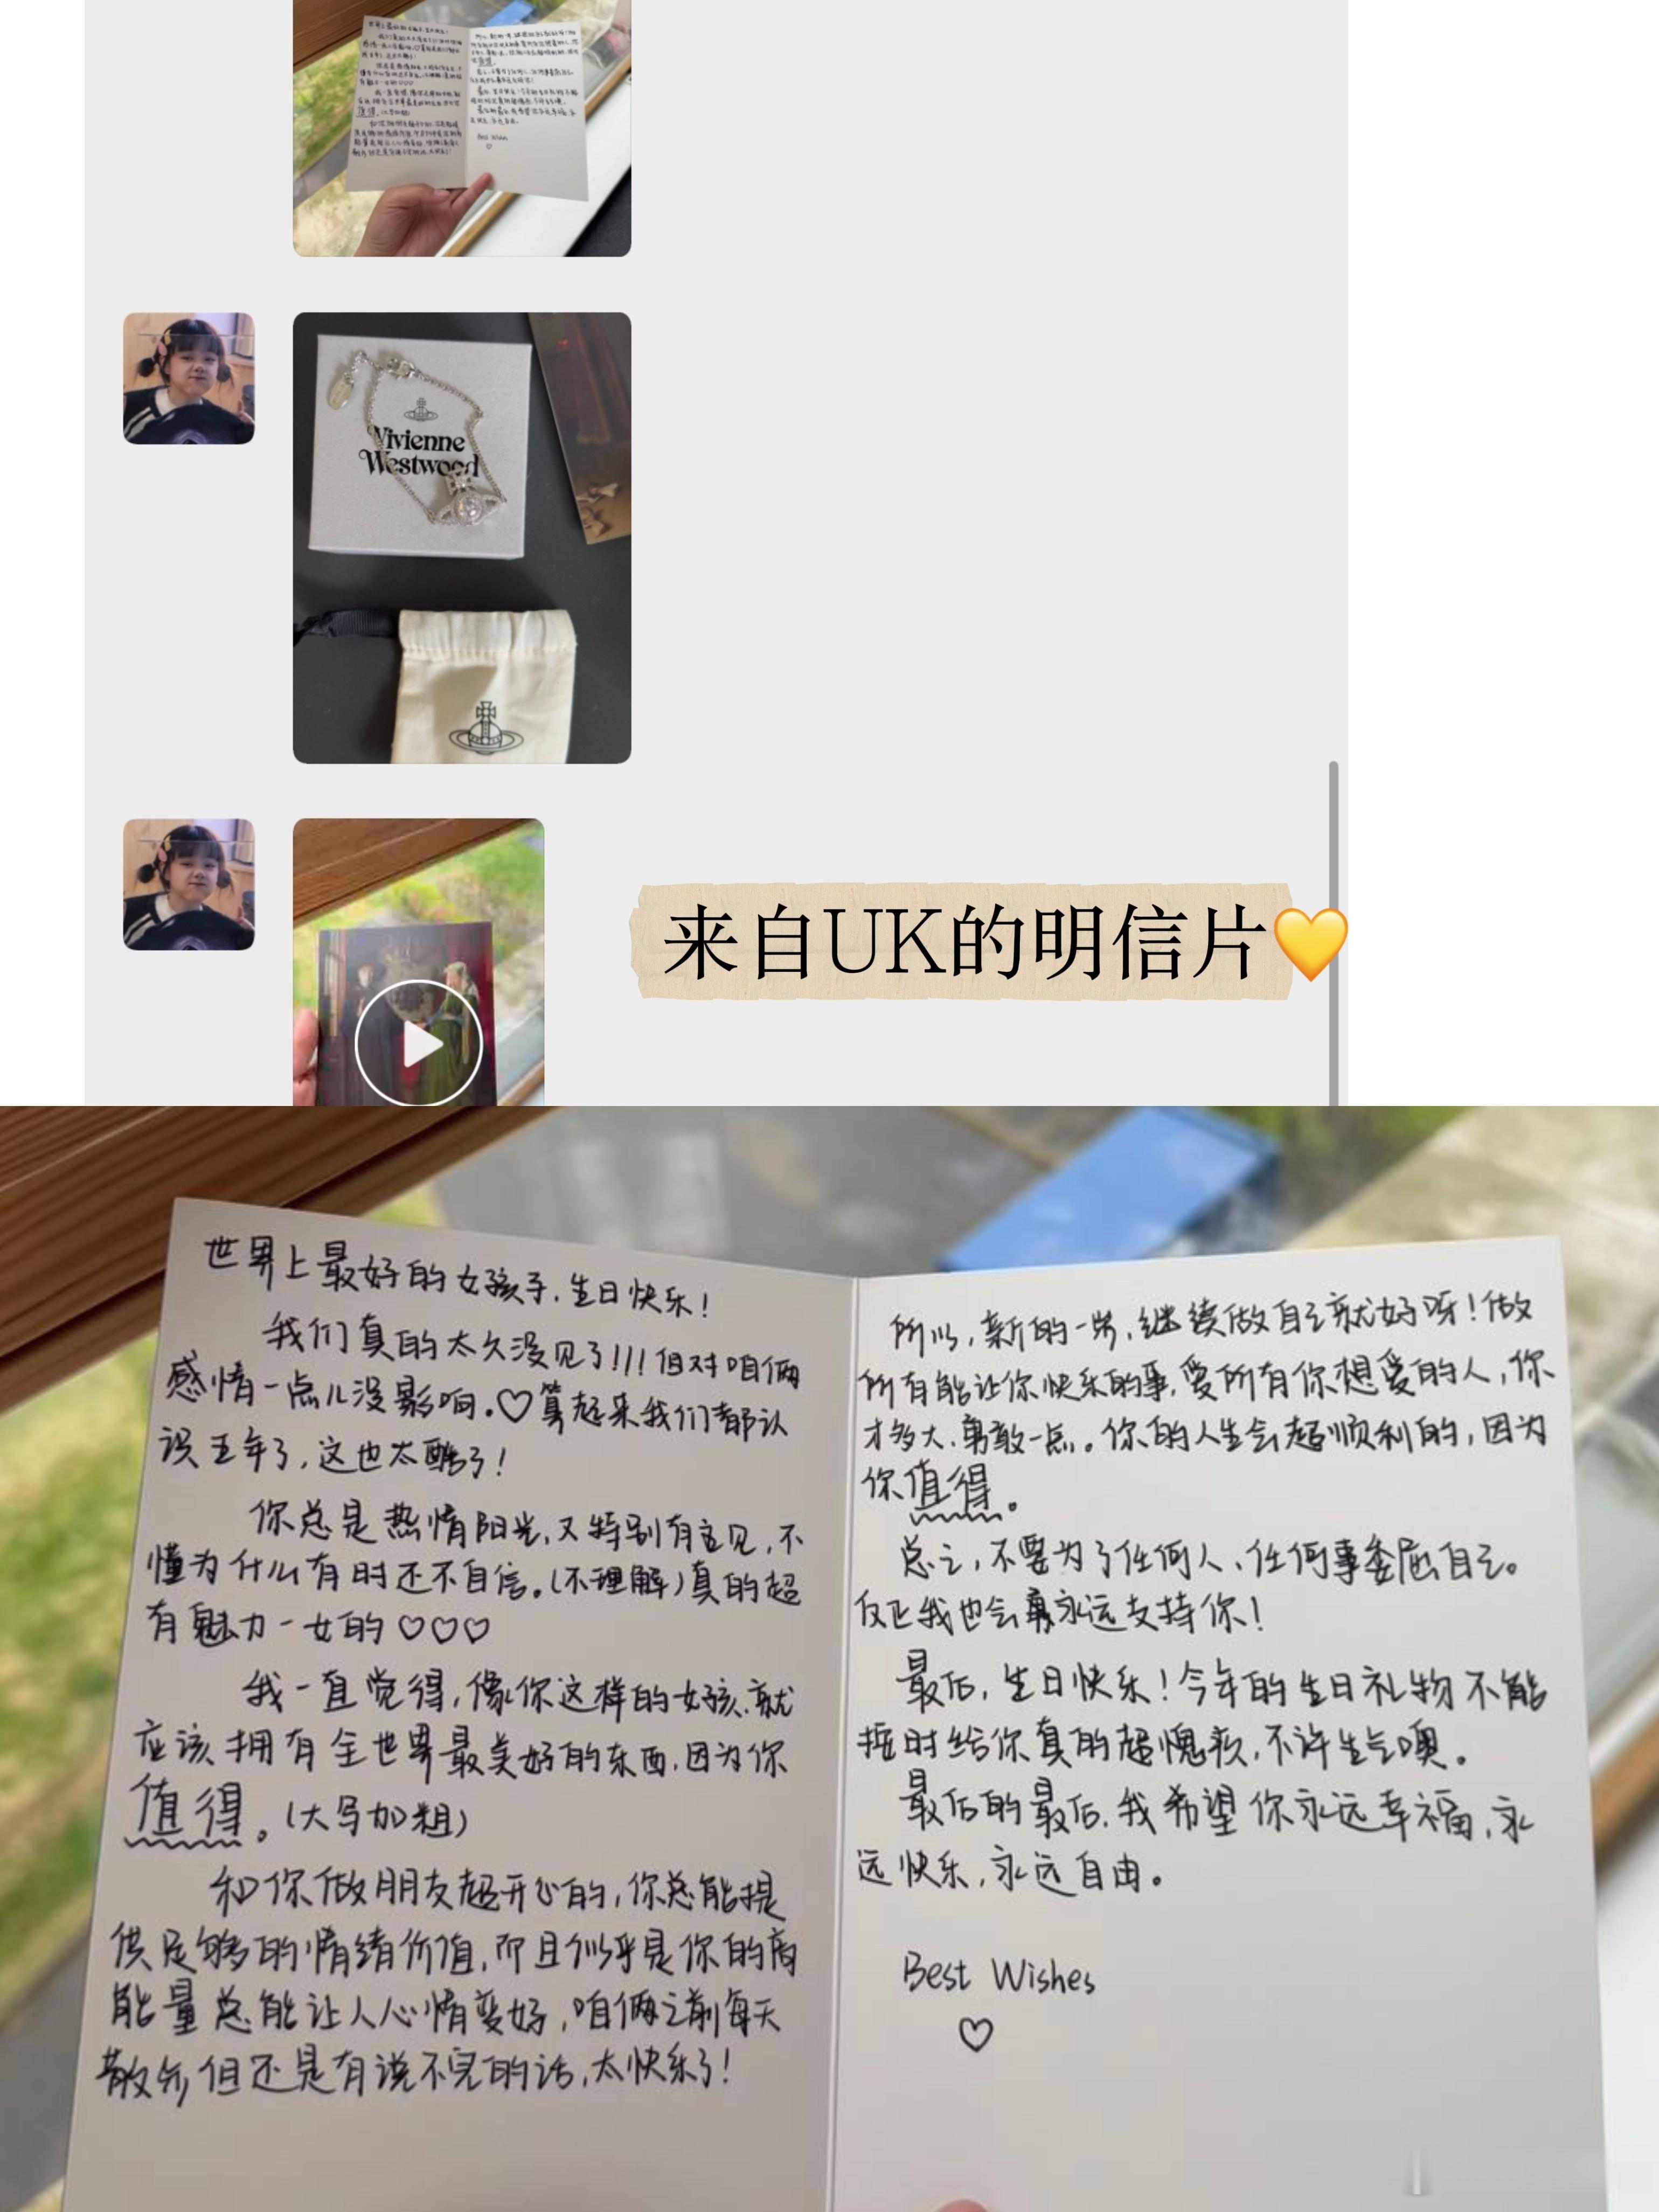 Vivienne
Westwood
来自UK的明信片💛
世界上最好的女孩子,生日快乐!
我们真的太久没见了!!!但对咱俩
感情一点儿没影响。♡算起来我们都认
识五年了,这也太酷了!
你总是热情阳光,又特别有主见,不
懂为什么有时还不自信。(不理解)真的超
有魅力一女的♡♡♡
我一直觉得,像你这样的女孩,就
应该拥有全世界最美好的东西,因为你
值得。(大写加粗)
和你做朋友超开心的,你总能提
供足够的情绪价值,而且似乎是你的高
能量总能让人心情变好,咱俩之前每天
散步但还是有说不完的话,太快乐了!
所以,新的一岁,继续做自己就好呀!做
所有能让你快乐的事,爱所有你想爱的人,你
才多大,勇敢一点。你的人生会超顺利的,因为
你值得。
总之,不要为了任何人、任何事委屈自己。
反正我也会永远支持你!
最后,生日快乐!今年的生日礼物不能
按时给你真的超愧疚,不许生气噢。
最后的最后,我希望你永远幸福,永
远快乐,永远自由。
Best Wishes
♡